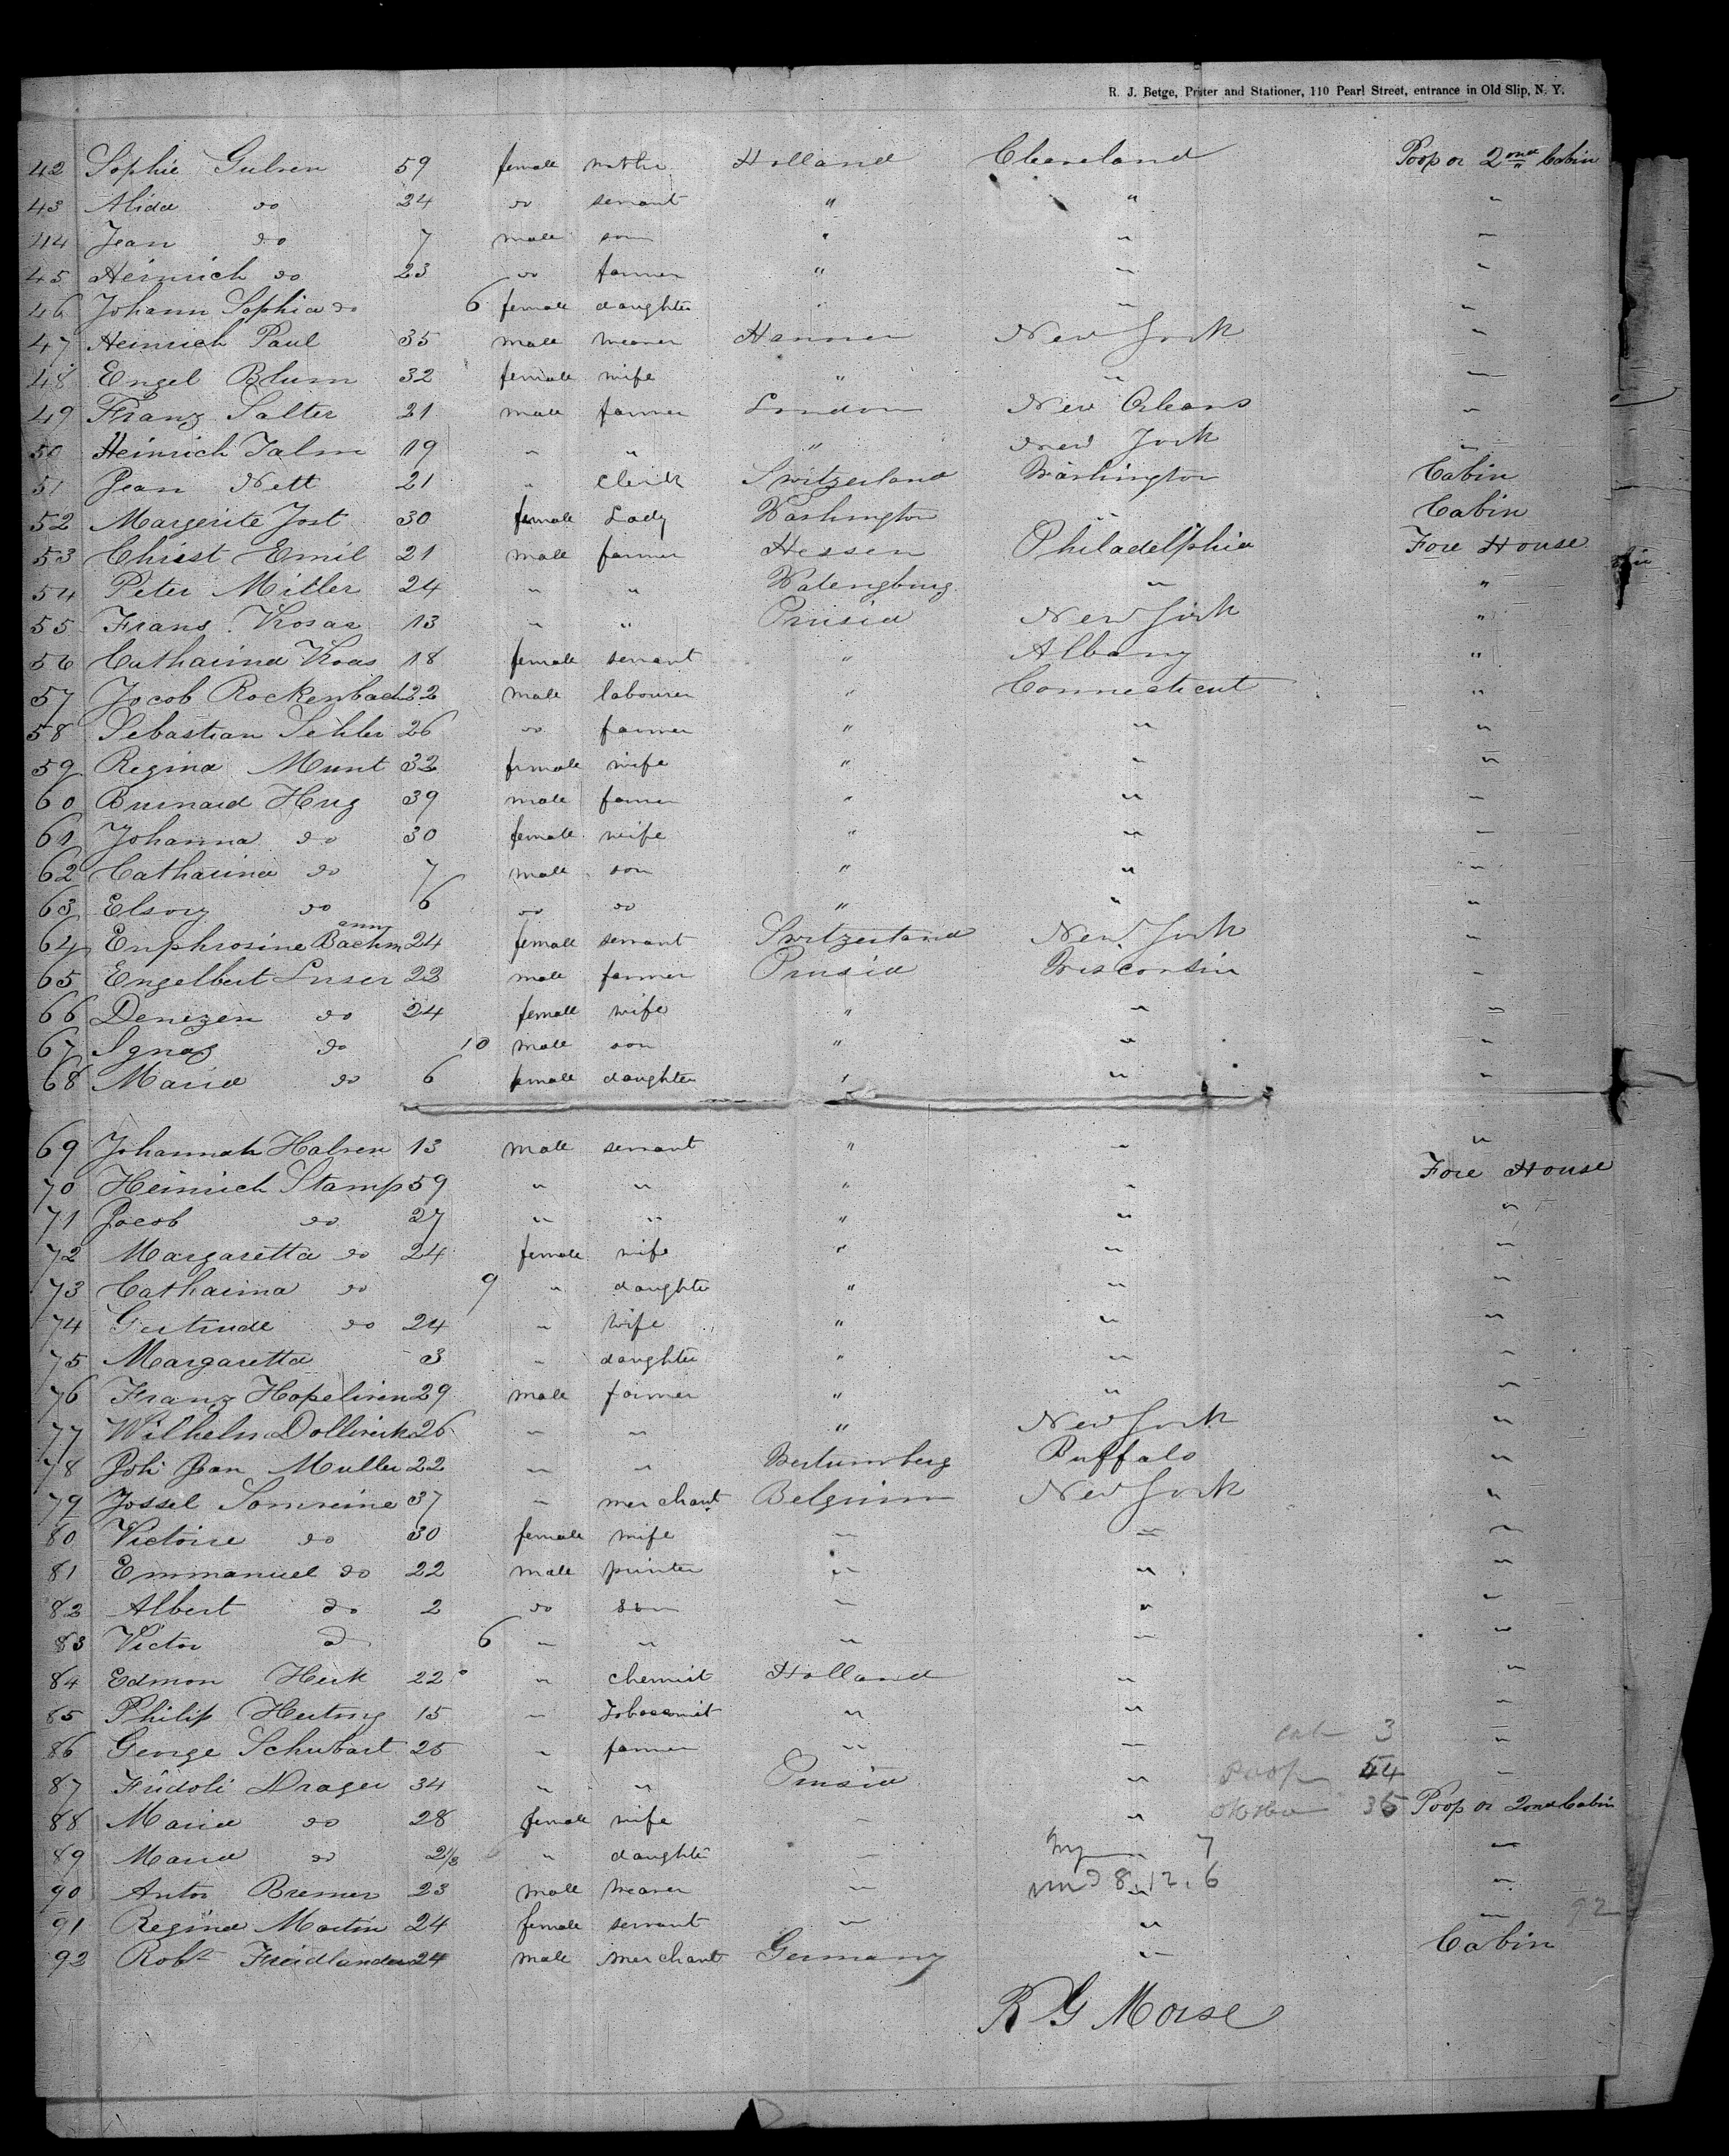 R. J. Betge, Priter and Stationer, 110 Pearl Street, entrance in Old Slip, N. Y.
42 Sophie Gulven 59 female mother Holland Cleaveland Poop or 2ond Cabin
43 Alida do 24 do servant " " "
44 Jean do 7 male son " " "
45 Heinrich do 23 do farmer " " "
46 Johann Sophia do 6 female daughter " " "
47 Heinrich Paul 35 male weaver Hannver New York "
48 Engel Blum 32 female wife " " "
49 Franz Salter 21 male farmer London New Orleans "
50 Heinrich Talm 19 " " " New York "
51 Jean Nett 21 " Clerk Switzerland Washington Cabin
52 Margerite Jost 30 female Lady Washington " Cabin
53 Christ Emil 21 male farmer Hessen Philadelphia Fore House
54 Peter Miller 24 " " Watengburg " "
55 Frans Kosas 13 " " Prusia New York "
56 Catharina Koas 18 female servant " Albany "
57 Jocob Rockenbach 22 male labourer " Connecticut "
58 Sebastian Sehler 26 do farmer " " "
59 Regina Munt 32 female wife " " "
60 Burnard Hug 39 male farmer " " "
61 Johanna do 30 female wife " " "
62 Catharina do 7 male son " " "
63 Elsory do 6 do do " " "
64 Euphrosine Bachmann 24 female servant Switzerland New York "
65 Engelbert Luser 22 male farmer Prusia Wisconsin "
66 Denezen do 24 female wife " " "
67 Ignaz do 10 male son " " "
68 Maria do 6 female daughter " " "
69 Johannah Halven 13 male servant " " "
70 Heinrich Stamp 59 " " " " Fore House
71 Jacob do 27 " " " " "
72 Margaretta do 24 female wife " " "
73 Catharina do 9 " daughter " " "
74 Gertrude do 24 " wife " " "
75 Margaretta 3 " daughter " " "
76 Franz Hopeliven 29 male farmer " " "
77 Wilhelm Dollwick 26 " " " New York "
78 Joh Jean Muller 22 " " Wertumberg Buffalo "
79 Jossel Somreine 37 " merchant Belgium New York "
80 Victoire do 30 female wife " " "
81 Emmanuel do 22 male printer " " "
82 Albert do 2 do son " " "
83 Victor do 6 " " " " "
84 Edmon Heck 22 " chemist Holland " "
85 Philip Hertong 15 " Tobaconist " " "
86 George Schubart 25 " farmer " " cab 3 "
87 Fridoli Drager 34 " " Prusia " Poop 54 "
88 Maria do 28 female wife " " 35 Poop or 2ond Cabin
89 Maria do 2/3 " daughter " 7 "
90 Anton Bremer 23 male weaver " " 8.12.6 "
91 Regina Martin 24 female servant " " " 92
92 Robt Freidlander 24 male merchant Germany " Cabin
R G Morse